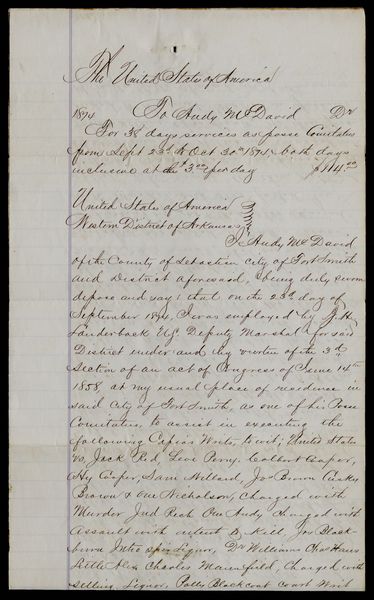 The United States of America
1894 To Andy McDavid Dr
For 38 days services as posse Comitatus
from Sept 23d to Oct 30th 1894 both days
inclusive at the $3.00 per day $114.00
United States of America
Western District of Arkansas
I Andy McDavid
of the County of Sebastian city of Fort Smith
and District aforesaid, being duly sworn
depose and say: that on the 23d day of
September 1894, I was employed by J. H.
Lauderback Esq Deputy Marshal for said
District under and by virtue of the 3d
section of an act of Congress of June 14th
1858, at my usual place of residence in
said city of Fort Smith, as one of his Posse
Comitatus, to assist in executing the
following Capias Writs, to wit; United States
vs, Jack Red, Levi Perry, Colbert Cooper,
Hy Cooper, Sam Willard, Jo Brown
Brown & One Nicholson, Charged with
Murder Jud Rich One Andy charged with
Assault with intent to Kill Joe Black-
burn Intro spir Liquor, Dr Williams
Little Alex Charles Mansfield, Charged with
selling Liquor, Polly Blackcoat Court Writ